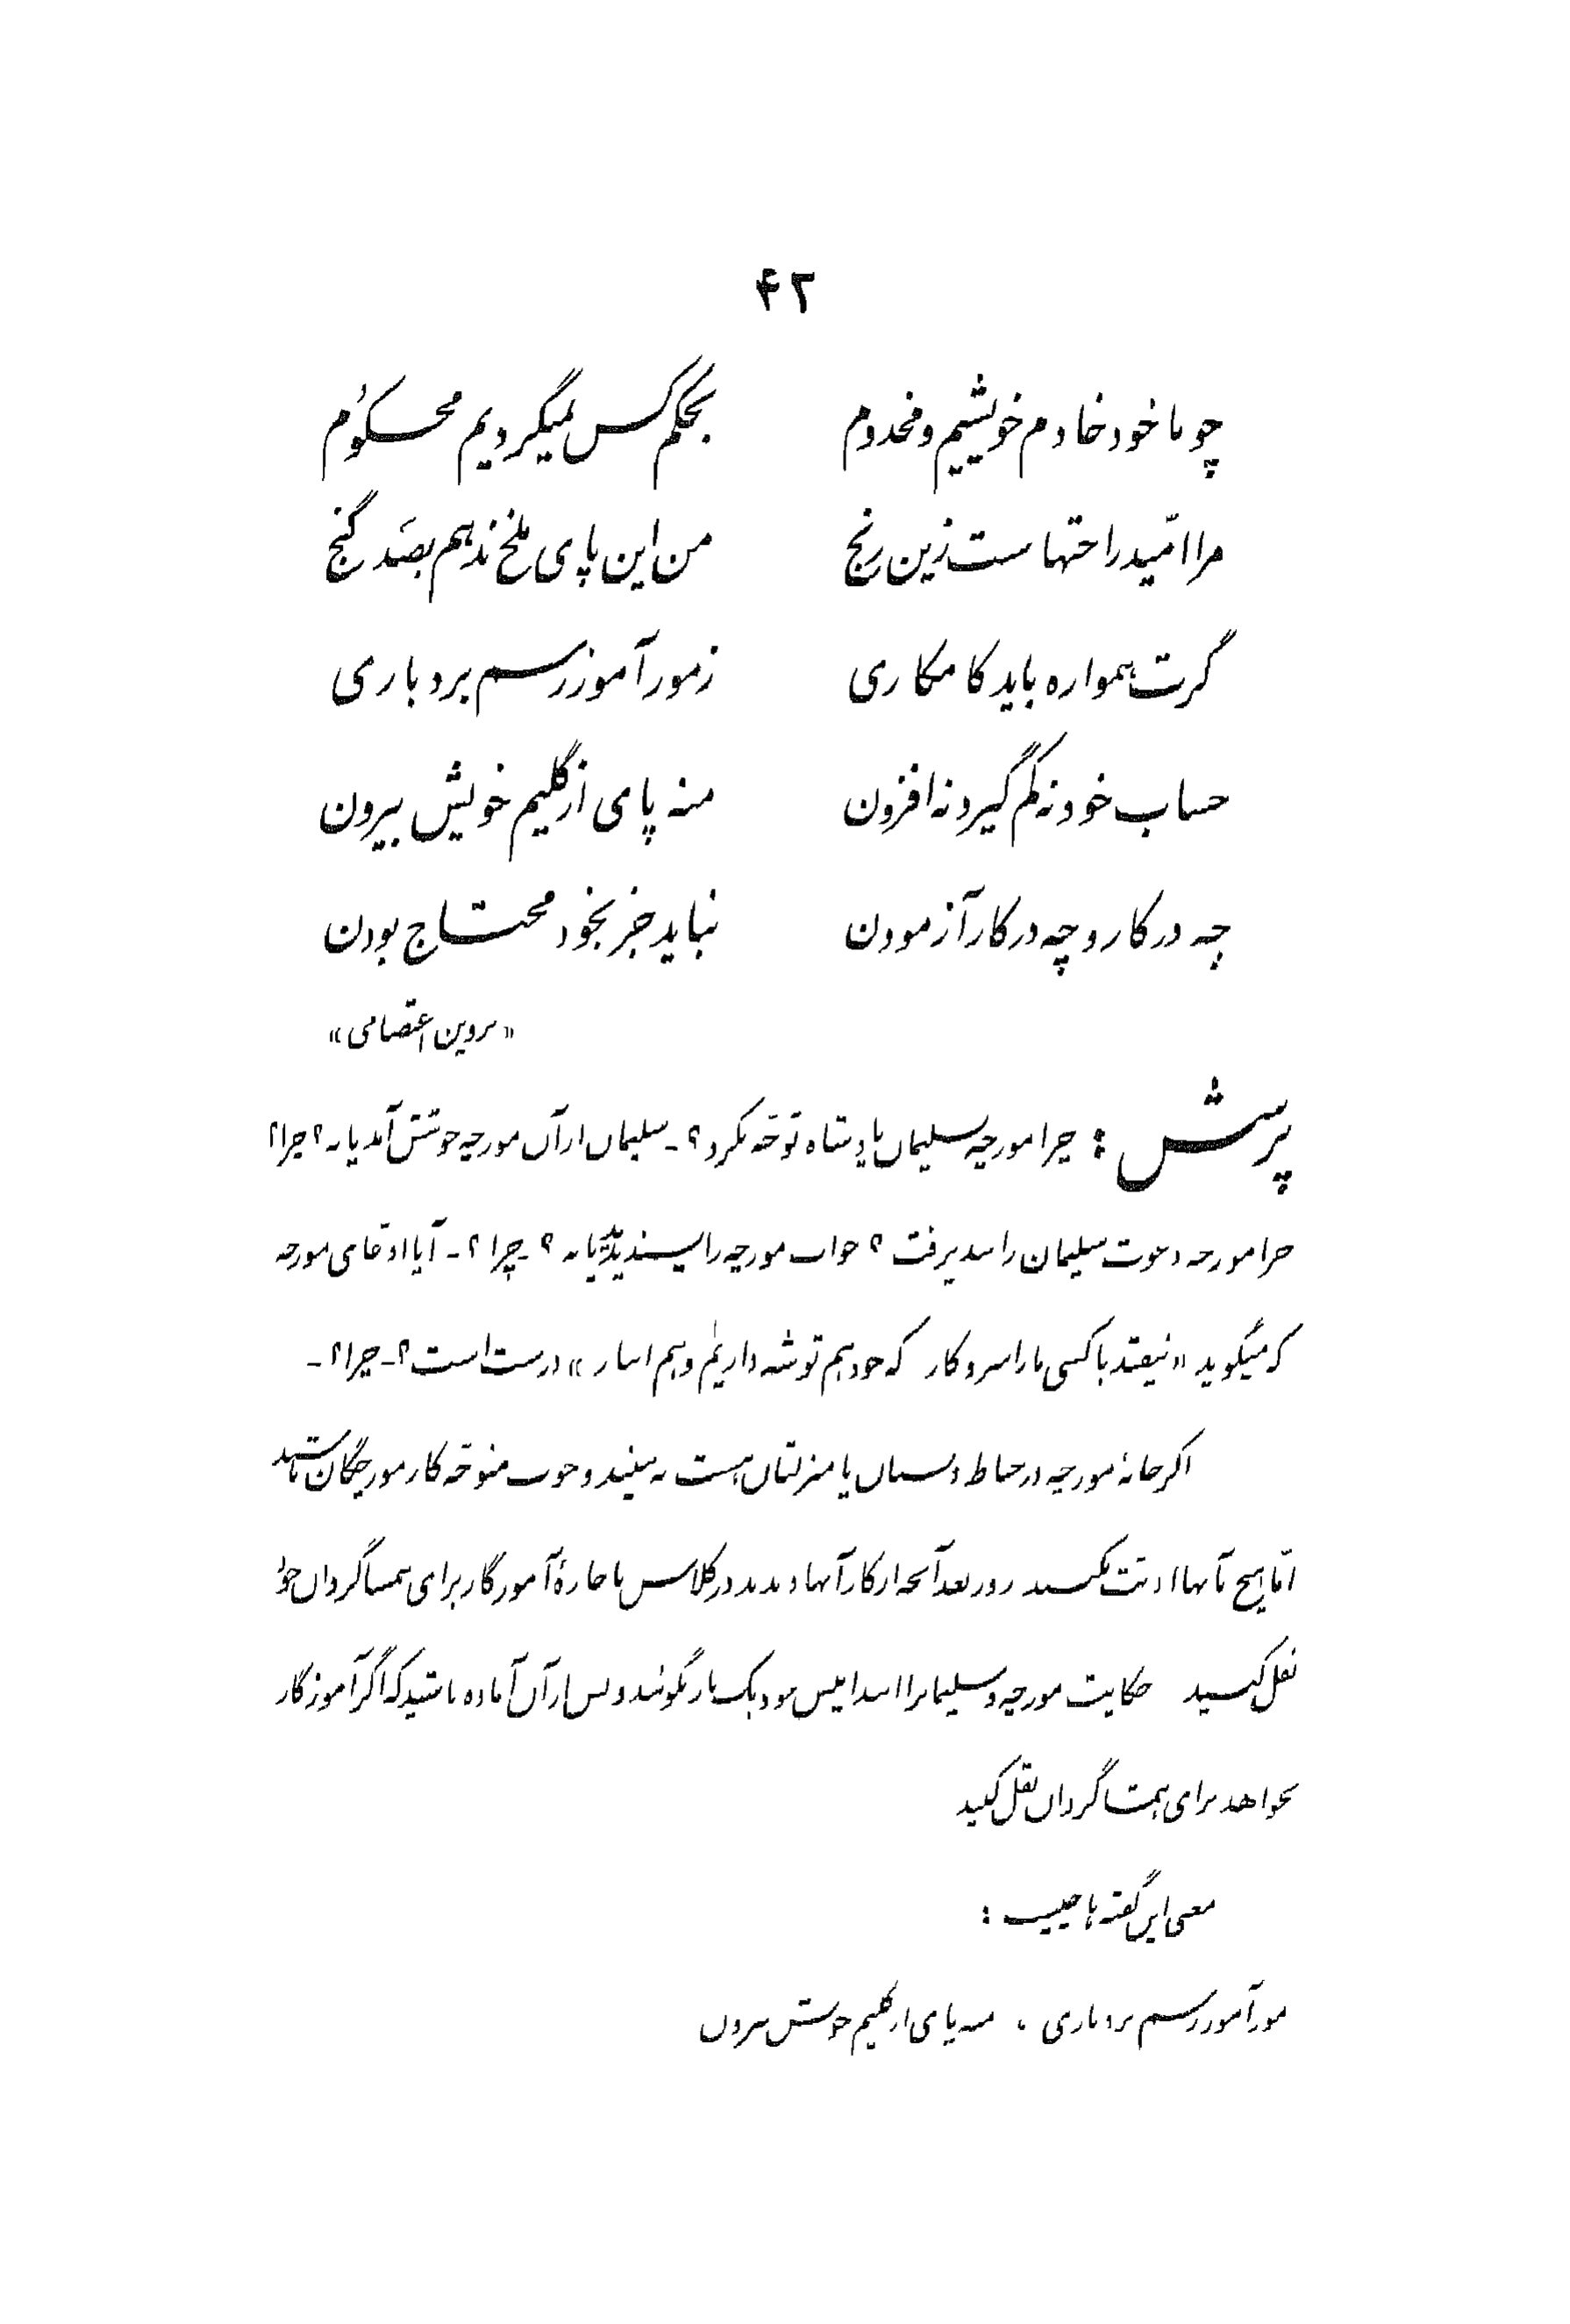 ۴۲
چو ما خود خادم خویشیم و مخدوم بحکم کس نمیگردیم محکوم
مرا امّید راحتهاست زین رنج من این پای ملخ ندهم بصد گنج
گرت همواره باید کامکاری زمور آموز رسم بردباری
حساب خود نه کم گیر و نه افزون منه پای از گلیم خویش بیرون
چه در کار و چه در کار آزمودن نباید جز بخود محتاج بودن
«پروین اعتصامی»
پرسش : چرا مورچه بسلیمان پادشاه توجّه نکرد ؟ - سلیمان از آن مورچه خوشش آمد یا نه ؟ چرا؟
چرا مورچه دعوت سلیمان را نپذیرفت ؟ جواب مورچه را پسندیدید یا نه ؟ - چرا ؟ - آیا ادّعای مورچه
که میگوید «نیفتد با کسی ما را سر و کار که خود هم توشه داریم و هم انبار» درست است ؟ - چرا ؟ -
اگر خانهٔ مورچه در حیاط دبستان یا منزلتان هست به بینید و خوب متوجّه کار مورچگان باشید
امّا هیچ بآنها اذیّت نکنید روز بعد آنچه از کار آنها دیدید در کلاس با اجازهٔ آموزگار برای همشاگردان خود
نقل کنید حکایت مورچه و سلیمان را ابتدا پیش خود یک بار بگوئید و پس از آن آماده باشید که اگر آموزگار
بخواهد برای همشاگردان نقل کنید
معنی این گفته ها چیست :
مور آموز رسم بردباری ، منه پای از گلیم خویش بیرون